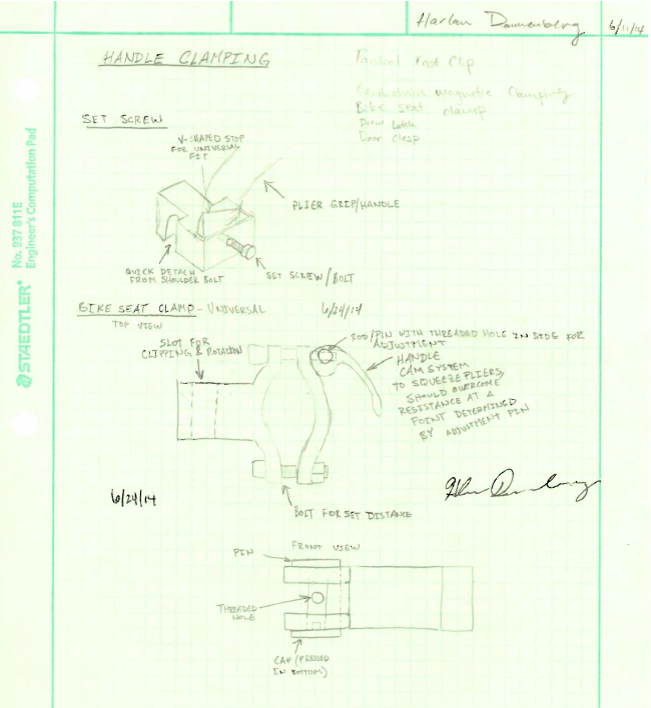 Harlan Dannenberg
6/11/14
HANDLE CLAMPING
Foot Clip
magnetic clamping
Bike seat clamp
Draw latch
Door clasp
SET SCREW
V-SHAPED STOP
FOR UNIVERSAL
FIT
PLIER GRIP/HANDLE
QUICK DETACH
FROM SHOULDER BOLT
SET SCREW/BOLT
STAEDTLER® No. 937 811E
Engineer's Computation Pad
BIKE SEAT CLAMP - UNIVERSAL
6/24/14
TOP VIEW
SLOT FOR
CLIPPING & ROTATION
ROD/PIN WITH THREADED HOLE IN SIDE FOR
ADJUSTMENT
HANDLE
CAM SYSTEM
TO SQUEEZE PLIERS,
SHOULD OVERCOME
RESISTANCE AT A
POINT DETERMINED
BY ADJUSTMENT PIN
6/24/14
BOLT FOR SET DISTANCE
FRONT VIEW
PIN
THREADED
HOLE
CAP (PRESSED
IN BOTTOM)